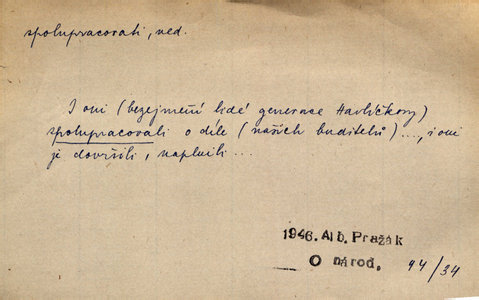 spolupracovati, ned.
I oni (bezejmenní lidé generace Havlíčkovy)
spolupracovali o díle (našich buditelů) ..., i oni
je dovršili, naplnili ...
1946. Alb. Pražák
O národ. 94/34